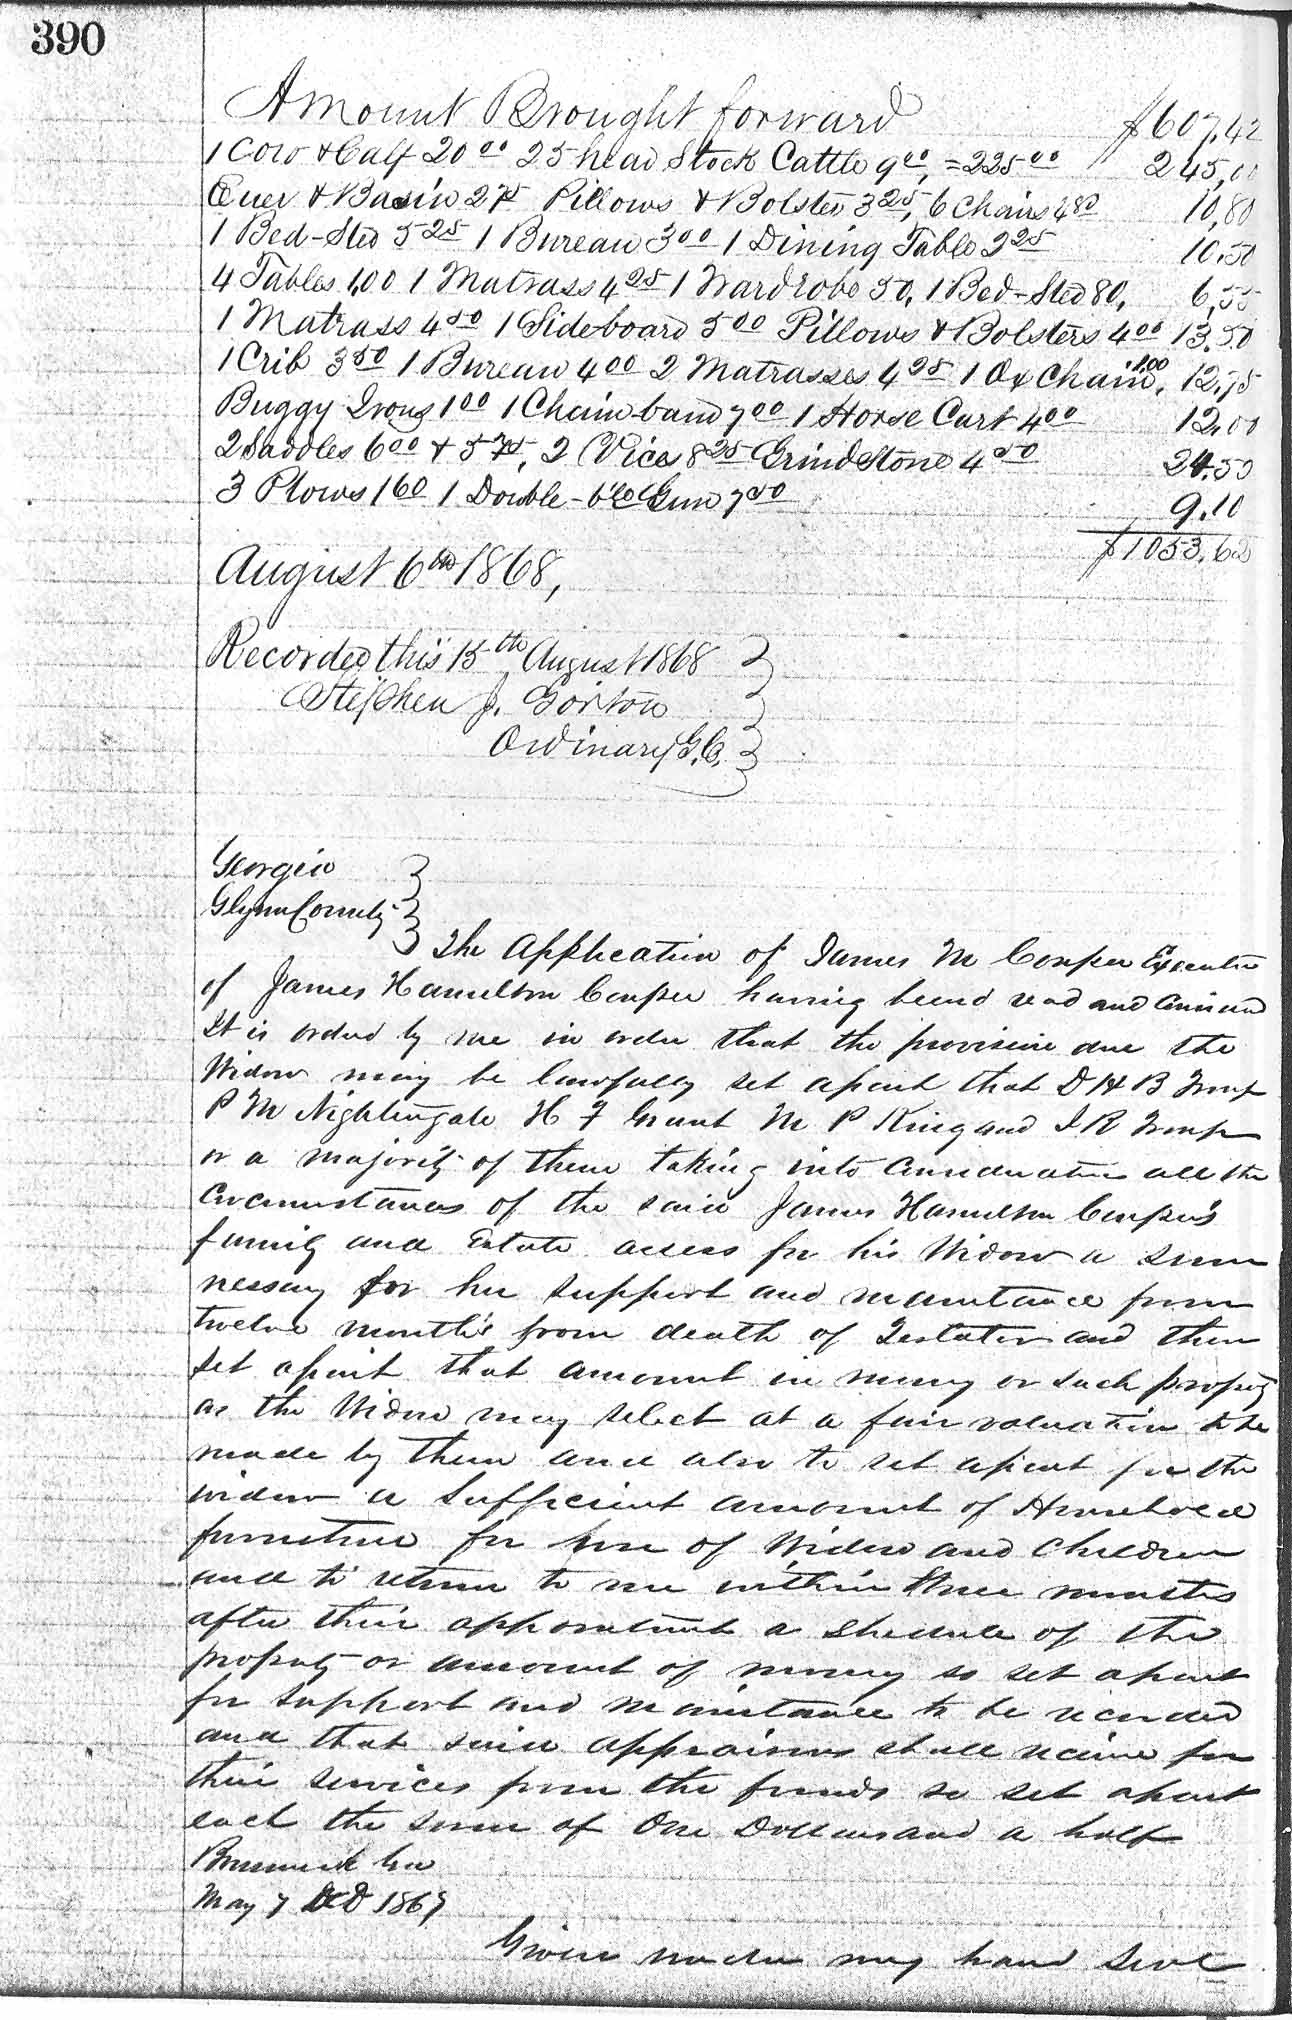 390
Amount Brought forward $607,42
1 Cow & Calf 20 00 25 head Stock Cattle 9 00, = 225 00 245,00
Ewer & Basin 2 75 Pillows & Bolsters 3 25, 6 Chairs 4 80 10,80
1 Bed-Sted 5 25 1 Bureau 3 00 1 Dining Table 2 25 10.50
4 Tables 1,00 1 Matrass 4 25 1 Wardrobe 50, 1 Bed-Sted 80, 6,55
1 Matrass 4 50 1 Sideboard 5 00 Pillows & Bolsters 4 00 13.50
1 Crib 3 50 1 Bureau 4 00 2 Matrasses 4 25 1 Ox Chain 1,00, 12,75
Buggy Irons 1 00 1 Chain band 7 00 1 Horse Cart 4 00 12,00
2 Saddles 6 00 & 5 75, 2 Vice 8 25 Grind Stone 4 50 24.50
3 Plows 1 60 1 Double-b'l'd Gun 7 50 9.10
$1053,62
August 6th 1868,
Recorded this 15th August 1868
Stephen J. Gorton
Ordinary G.C.
Georgia
Glynn County
The Application of James M Couper Executor
of James Hamilton Couper having been read and
It is ordered by me in order that the provision due the
Widow may be lawfully set apart that D H B Troup
P M Nightingale H F Grant M P King and J R Troup
or a majority of them taking into consideration all the
circumstances of the said James Hamilton Couper's
family and Estate assess for his Widow a sum
nessary for her support and maintance from
twelve month's from death of Testator and then
set apart that amount in money or such property
as the Widow may select at a fair valuation to be
made by them and also to set apart for the
widow a sufficient amount of Household
furniture for use of Widow and Children
and to return to me within three months
after their appointment a shedule of the
property or amount of money so set apart
for support and maintance to be recorded
and that said appraisers shall receive for
their services from the funds so set apart
each the sum of One Dollar and a half
Brunswick Geo
May 7 AD 1867
Given under my hand Seal